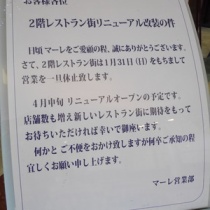 お客様各位
2階レストラン街リニューアル改装の件
日頃マーレをご愛顧の程、誠にありがとうございます。
さて、2階レストラン街は1月31日(日)をもちまして
営業を一旦休止致します。
4月中旬 リニューアルオープンの予定です。
店舗数も増え新しいレストラン街に期待をもって
お待ちいただければ幸いで御座います。
何かと ご不便をおかけ致しますが何卒ご承知の程
宜しくお願い申し上げます。
マーレ営業部